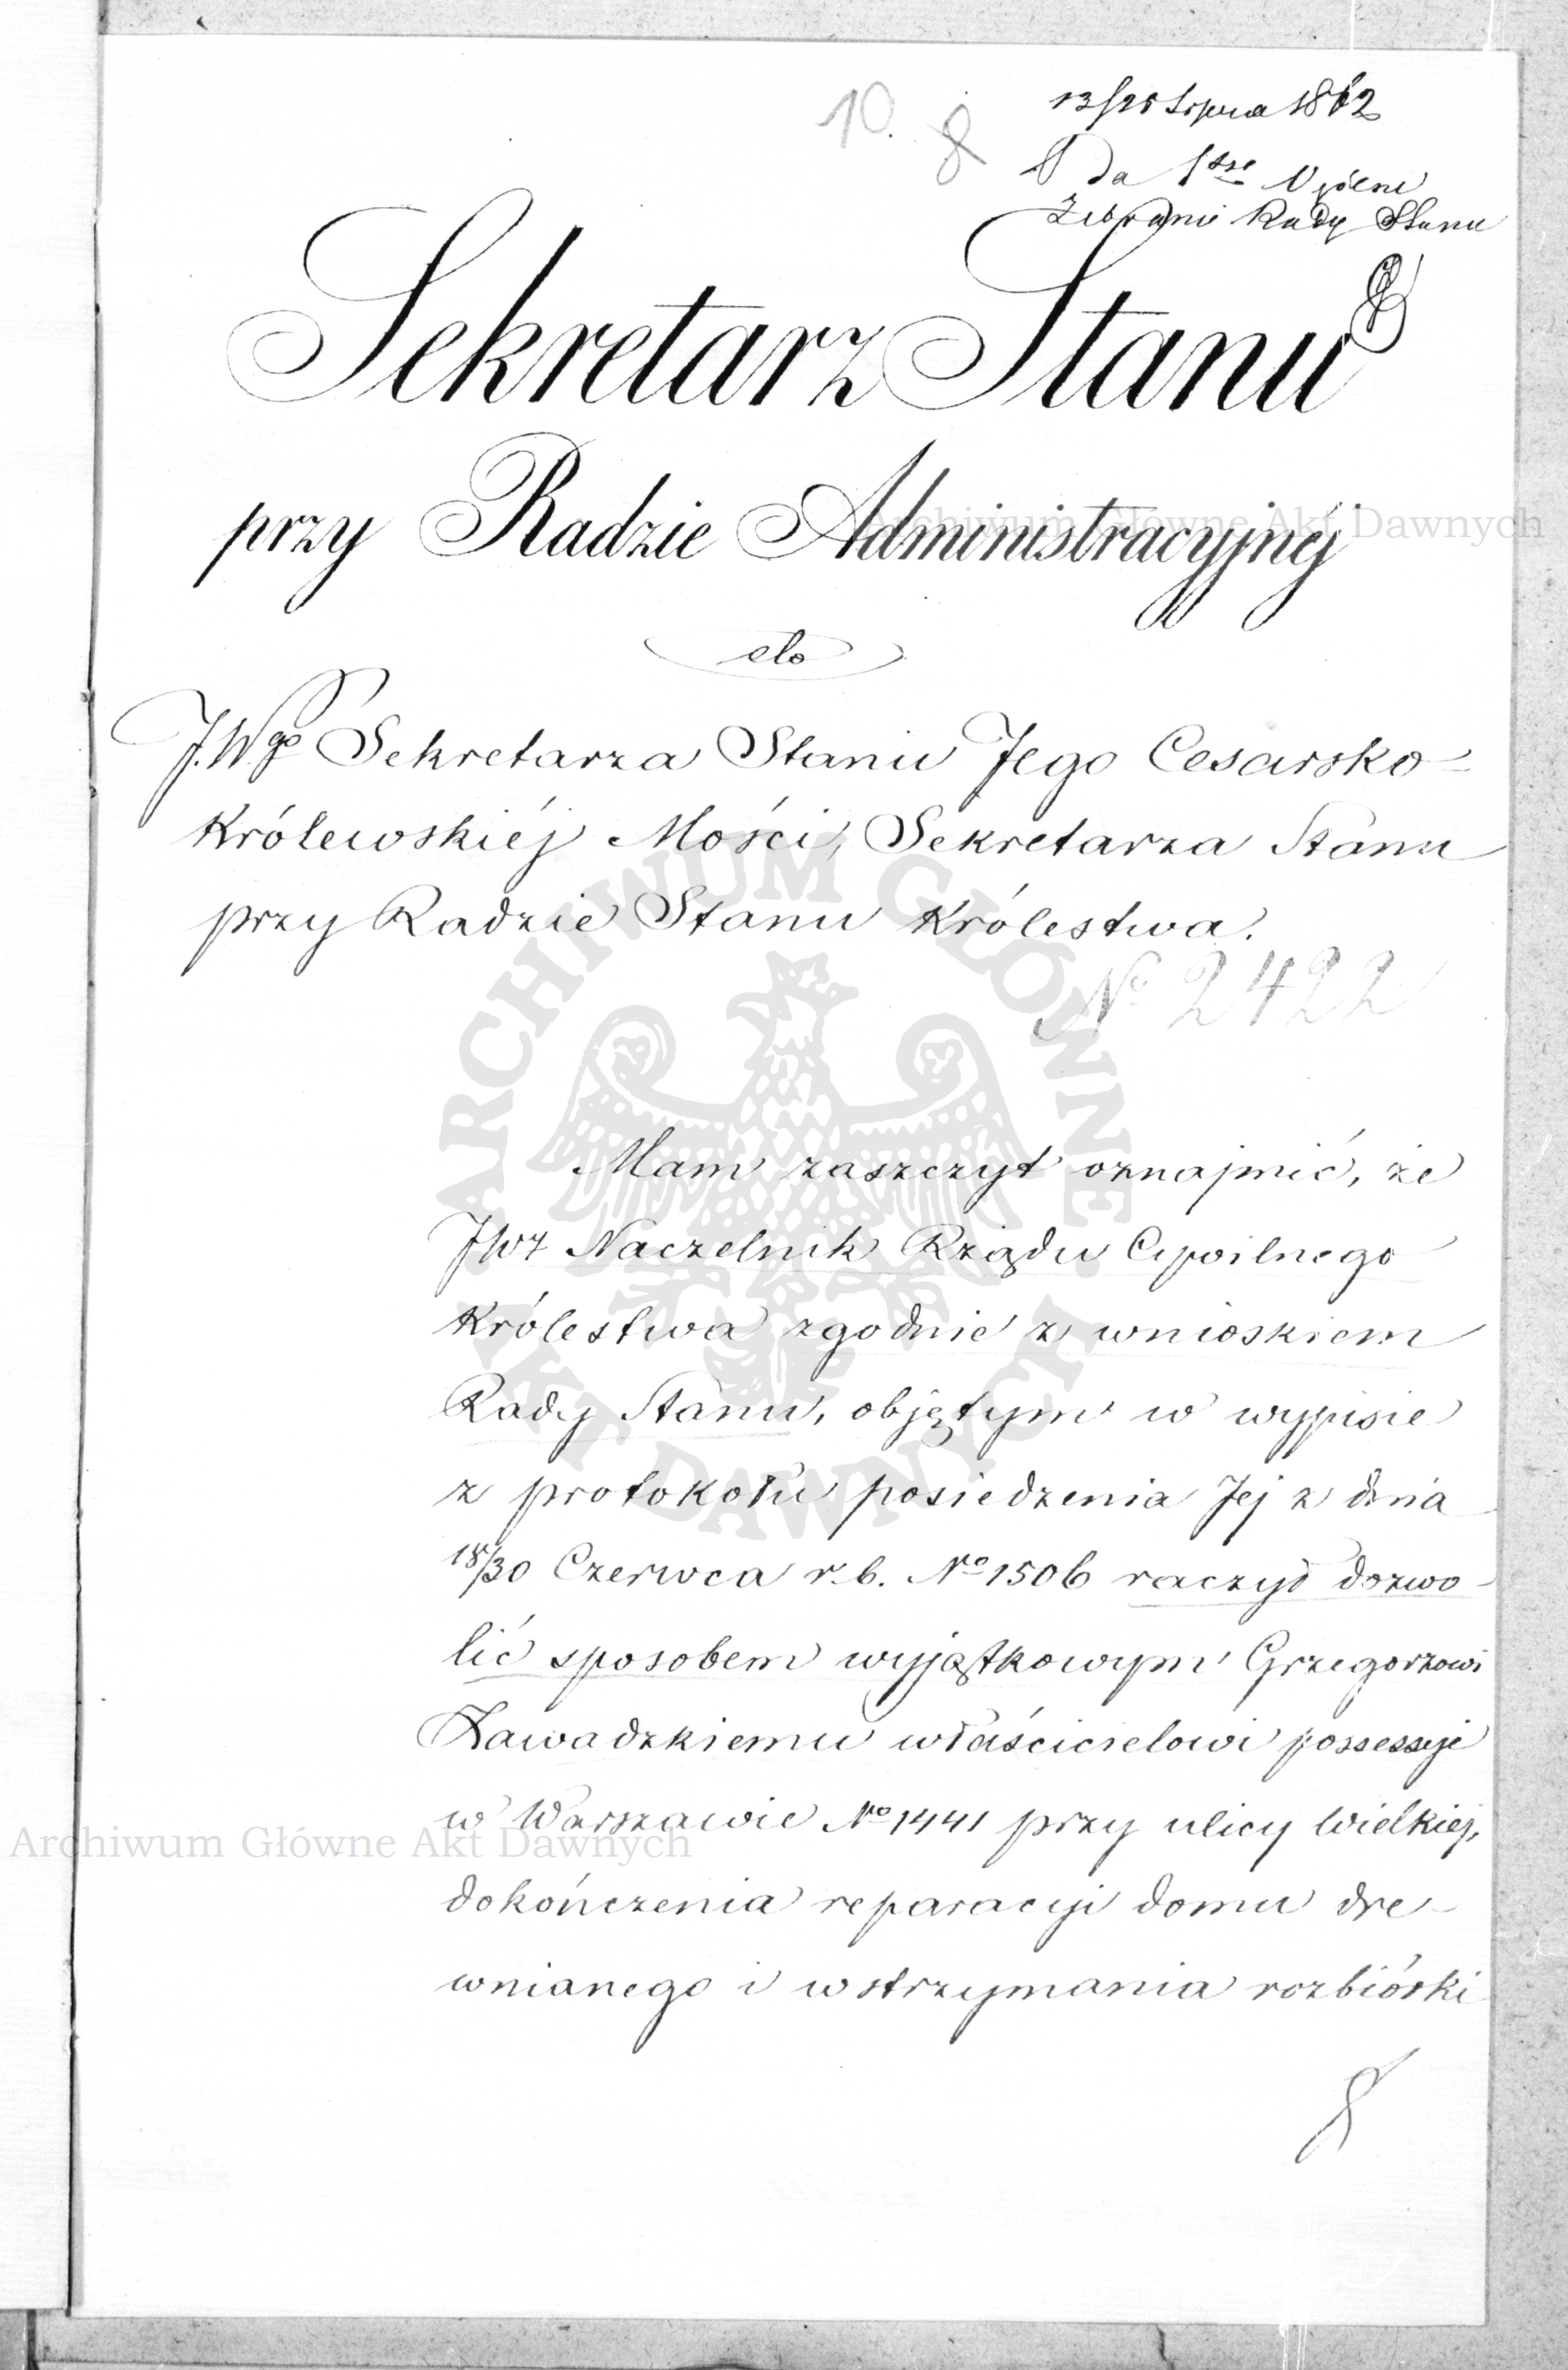 10. 8
13/25 Lipca 1862
Na 1sze Ogólne
Zebranie Rady Stanu
Sekretarz Stanu
przy Radzie Administracyjnéj
do
J.Wgo Sekretarza Stanu Jego Cesarsko-
Królewskiéj Mości, Sekretarza Stanu
przy Radzie Stanu Królestwa.
No 2422
Mam zaszczyt oznajmić, że
JWż Naczelnik Rządu Cywilnego
Królestwa zgodnie z wnioskiem
Rady Stanu, objętym w wypisie
z protokołu posiedzenia Jej z dnia
18/30 Czerwca r.b. No 1506 raczył dozwo-
lić sposobem wyjątkowym Grzegorzowi
Zawadzkiemu właścicielowi possessyi
w Warszawie No 1441 przy ulicy Wielkiej,
dokończenia reparacyi domu dre-
wnianego i wstrzymania rozbiórki
Archiwum Główne Akt Dawnych
ARCHIWUM GŁÓWNE AKT DAWNYCH
Archiwum Główne Akt Dawnych